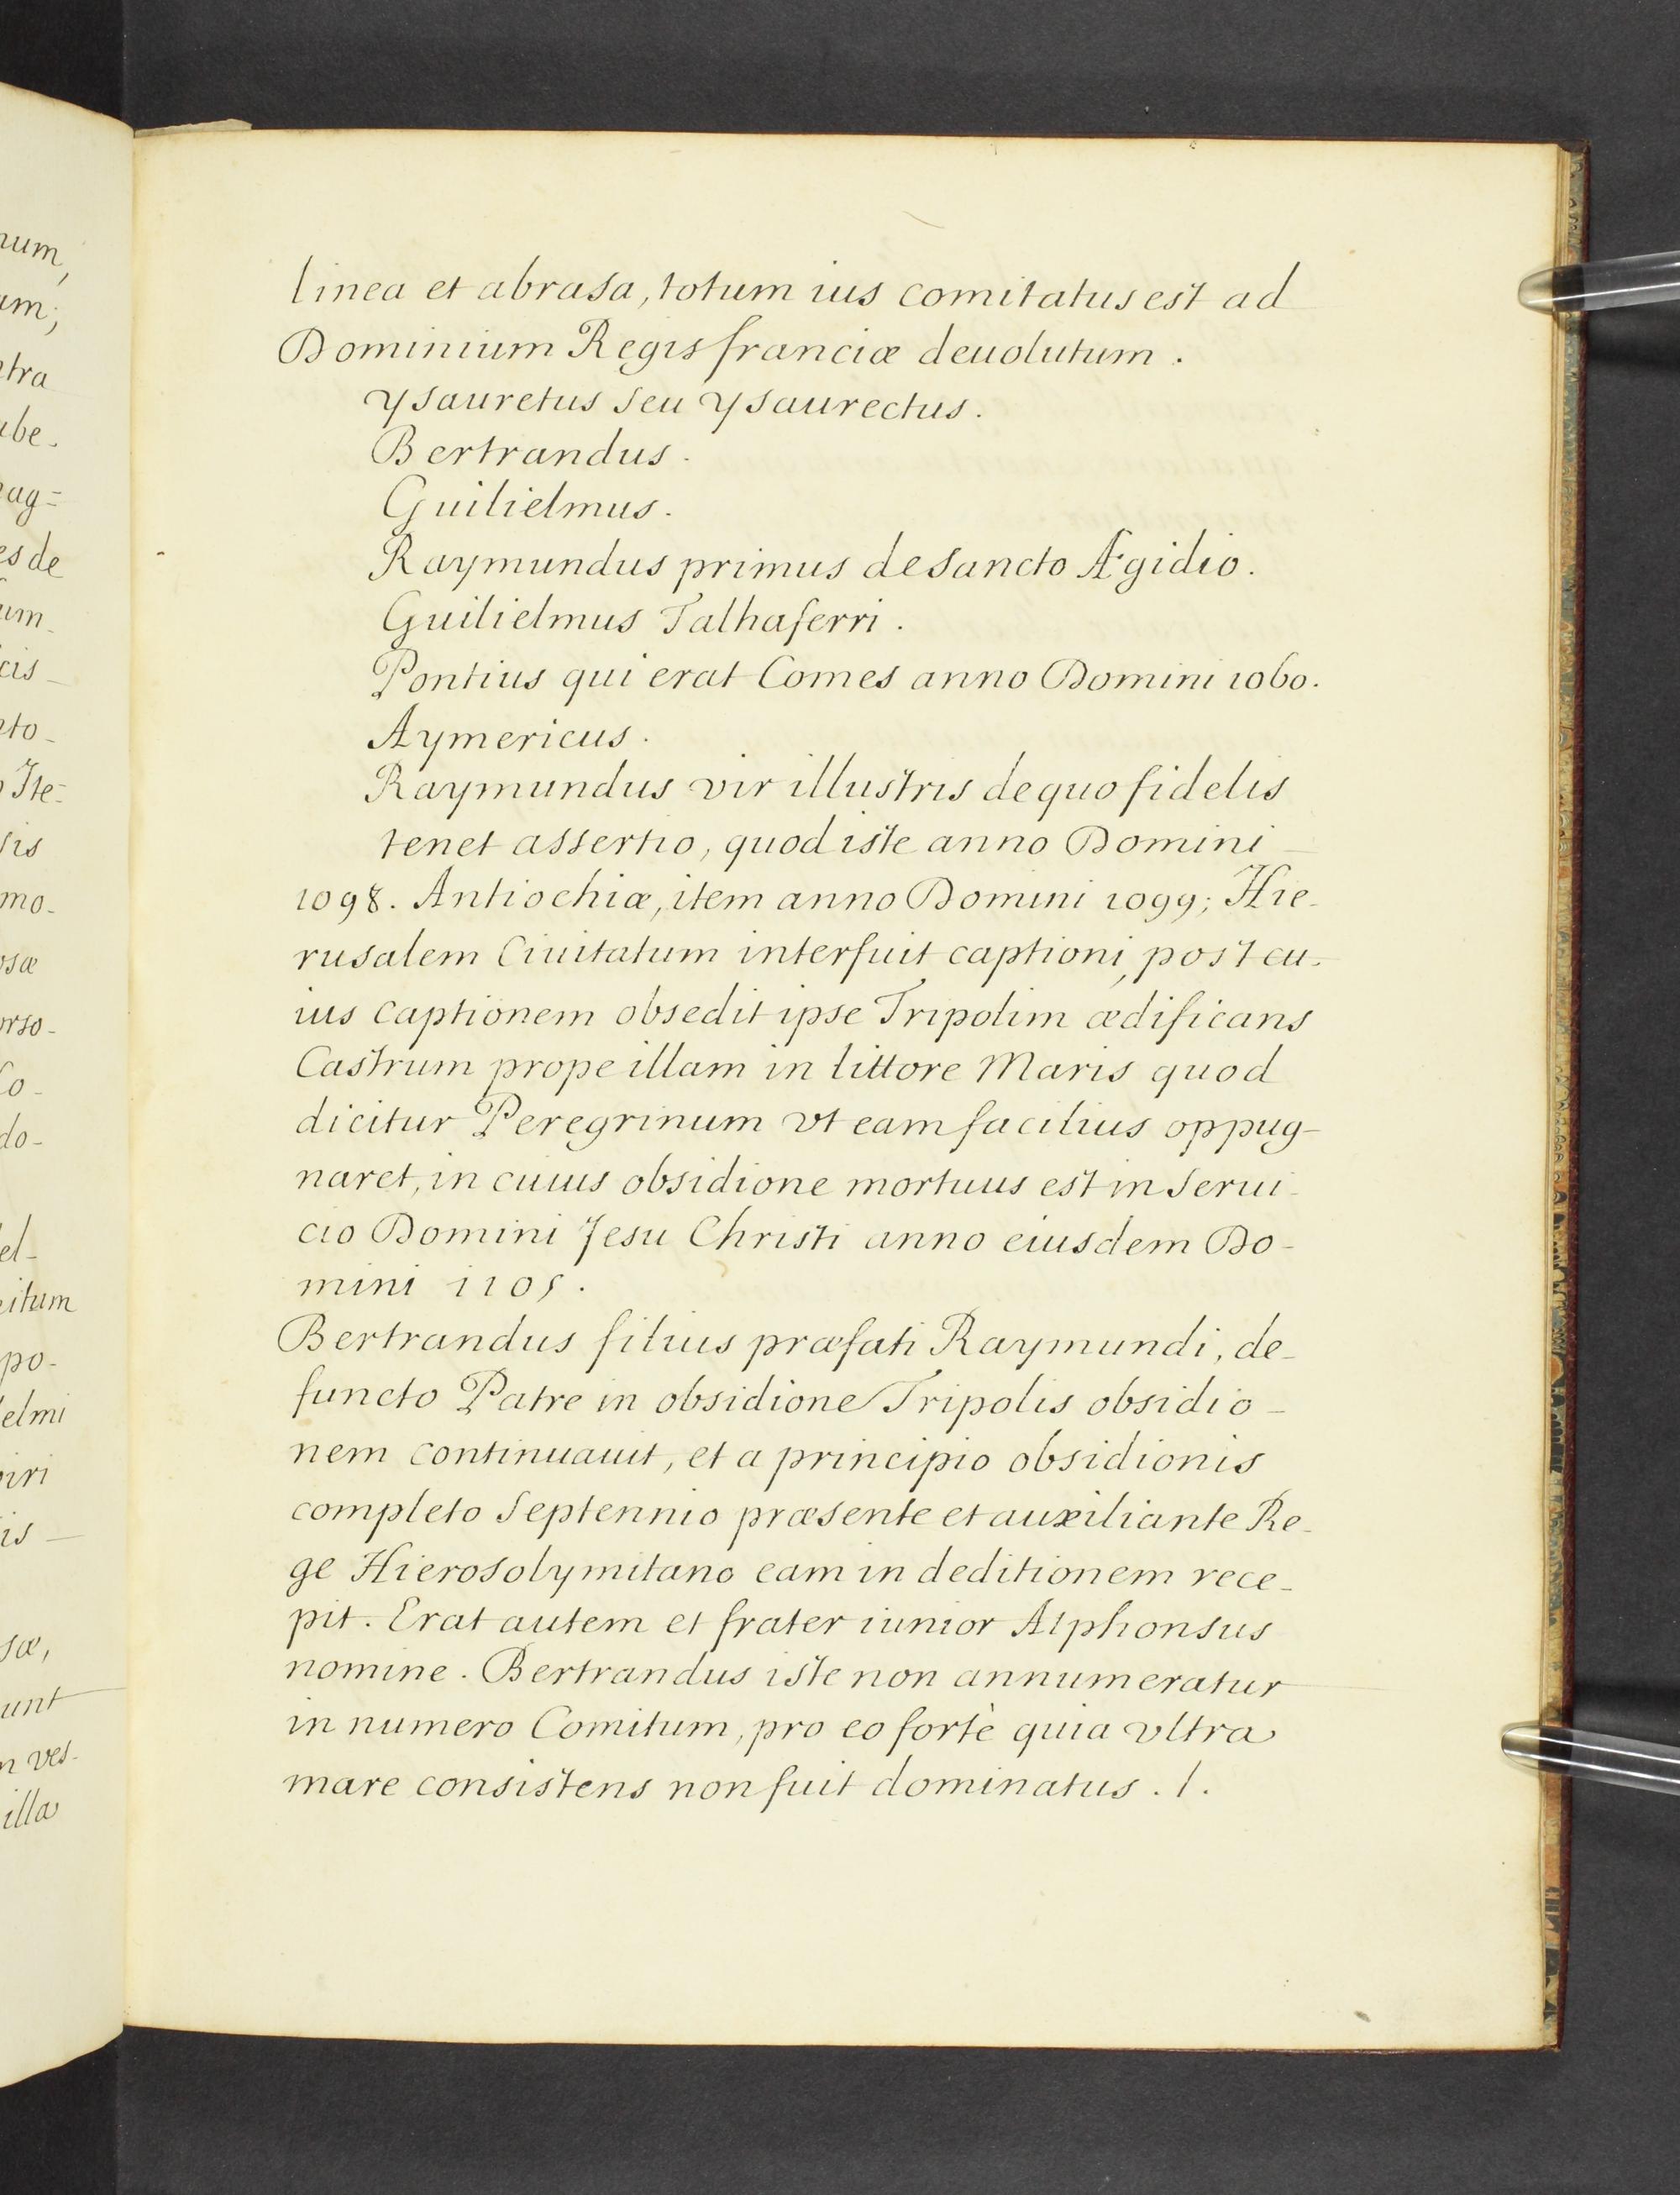 linea et abrasa, totum ius comitatus est ad
Dominium Regis franciæ deuolutum.
ysauretus seu ysaurectus.
Bertrandus.
Guilielmus.
Raymundus primus de sancto Ægidio.
Guilielmus Talhaferri.
Pontius qui erat Comes anno Domini 1060.
Aymericus.
Raymundus vir illustris de quo fidelis
tenet assertio, quod iste anno Domini
1098. Antiochiæ, item anno Domini 1099; Hie-
rusalem Ciuitatum interfuit captioni, post cu-
ius captionem obsedit ipse Tripolim ædificans
Castrum prope illam in littore Maris quod
dicitur Peregrinum vt eam facilius oppug-
naret, in cuius obsidione mortuus est in serui-
cio Domini Jesu Christi anno eiusdem Do-
mini 1105.
Bertrandus filius præfati Raymundi, de-
functo Patre in obsidione Tripolis obsidio-
nem continuauit, et a principio obsidionis
completo septennio præsente et auxiliante Re-
ge Hierosolymitano eam in deditionem rece-
pit. Erat autem et frater iunior Alphonsus
nomine. Bertrandus iste non annumeratur
in numero Comitum, pro eo fortè quia vltra
mare consistens non fuit dominatus. /.